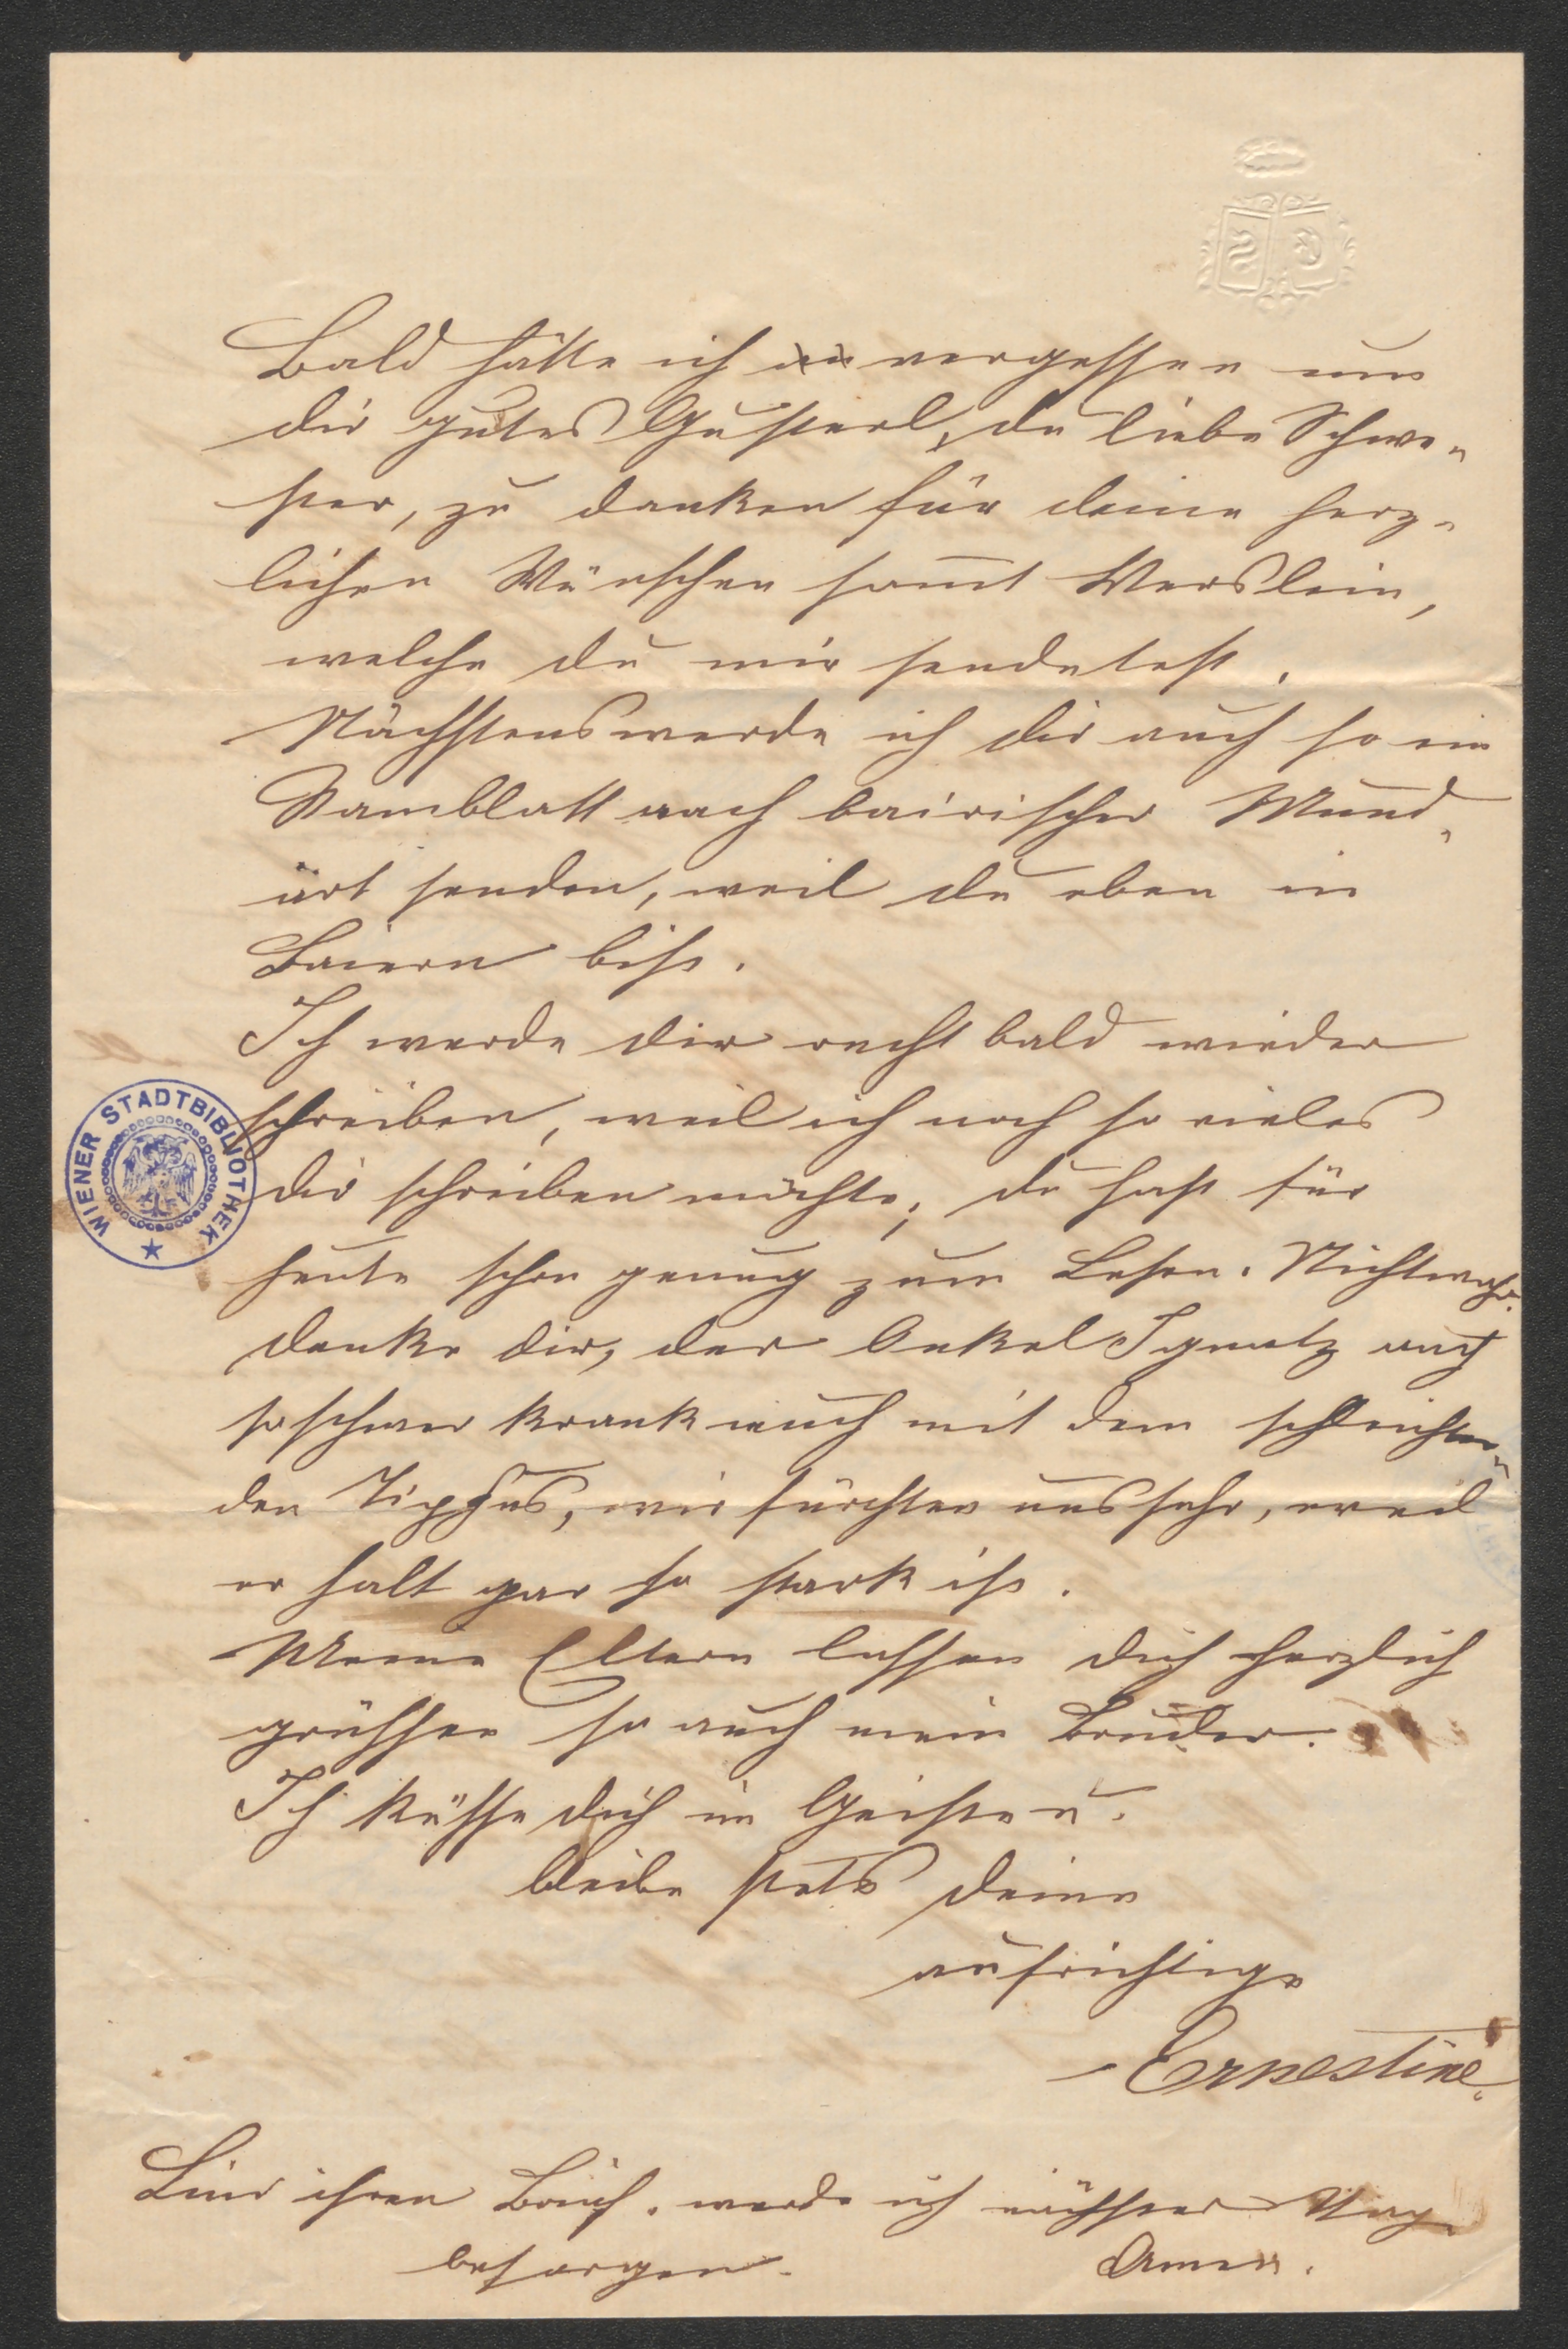 Bald hätte ich vergessen um
dir gutes Gusterl, du liebe Schwe-
ster, zu danken für deine herz-
lichen Wünschen samt Verslein,
welche du mir sendetest.
Nächstens werde ich dir auch so ein
Stamblatt nach bairischer Mund-
art senden, weil du eben in
Baiern bist.
Ich werde dir recht bald wieder
schreiben, weil ich noch so vieles
dir schreiben möchte, du hast für
heute schon genug zum Lesen. Nichtwahr.
denke dir, der Onkel Ignatz auch
so schwer krank auch mit dem schleichen-
den Tiphus, wir fürchten uns sehr, weil
er halt gar so stark ist.
Meine Eltern lassen dich herzlich
grüssen so auch mein Bruder.
Ich küsse dich im Geiste u.
bleibe stets deine
aufrichtige
Ernestine.
ihren werde ich nächster
besorgen. Amen.
WIENER STADTBIBLIOTHEK